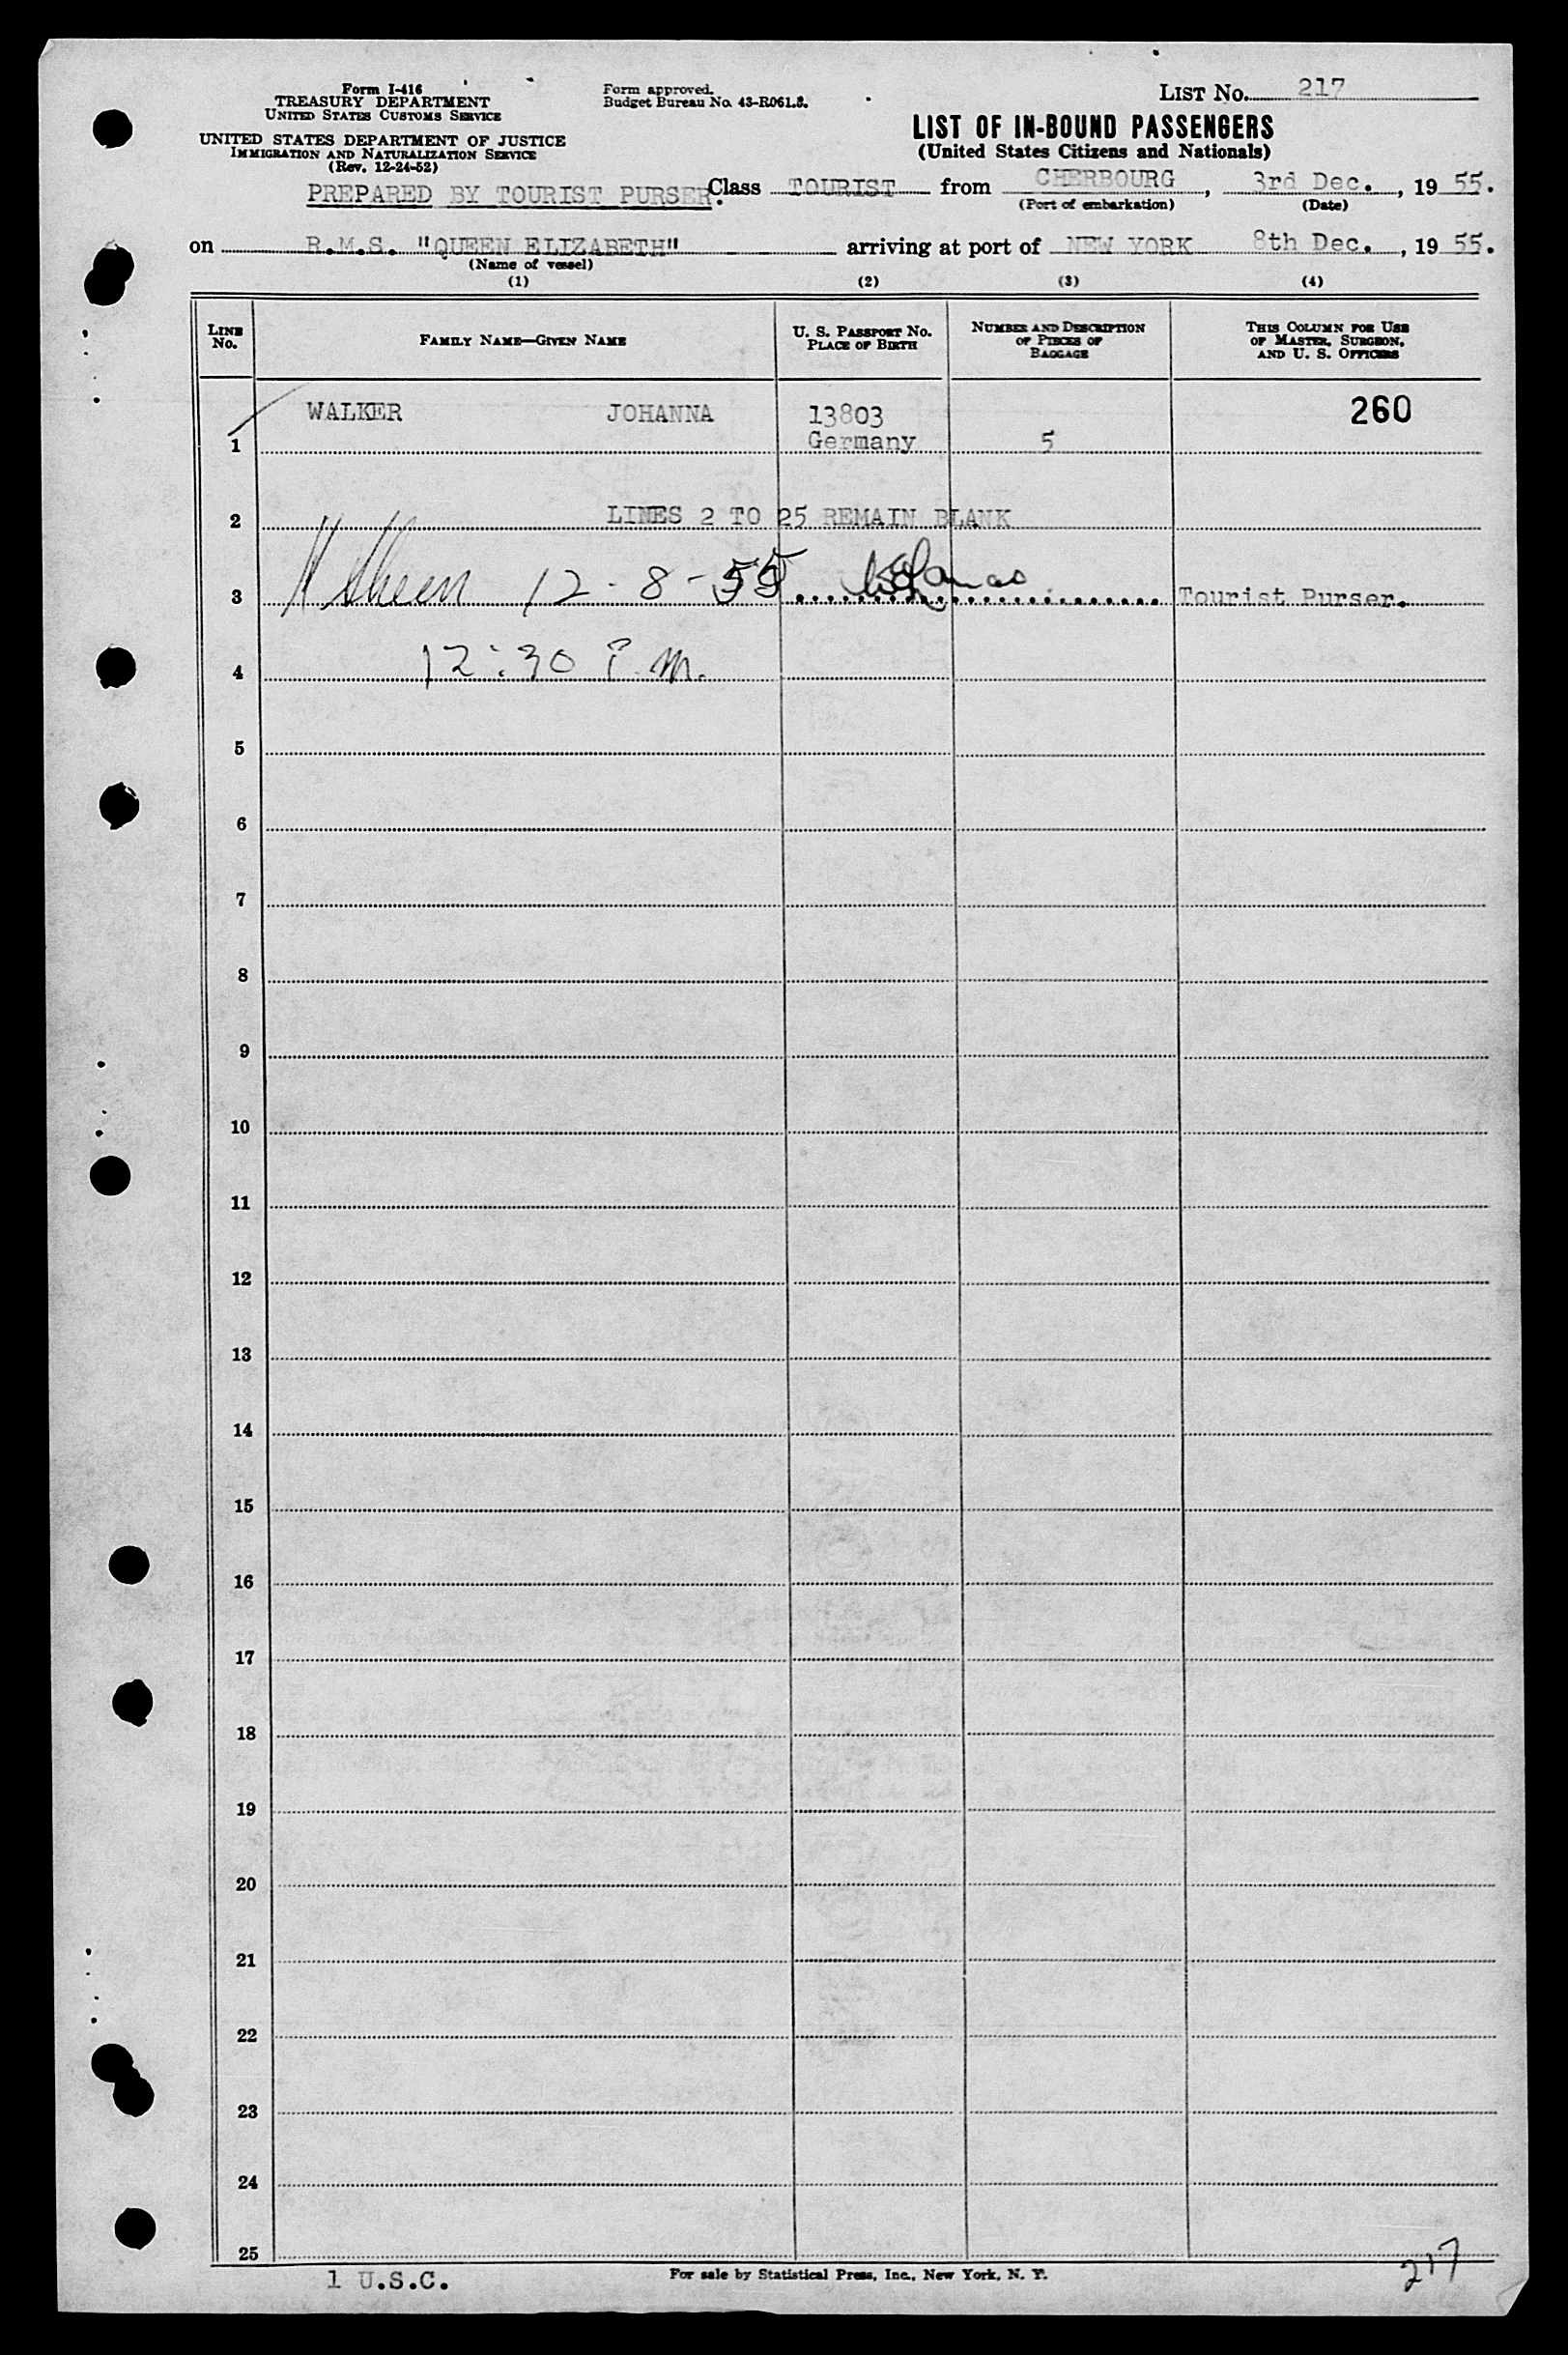 Form I-416
TREASURY DEPARTMENT
UNITED STATES CUSTOMS SERVICE
UNITED STATES DEPARTMENT OF JUSTICE
IMMIGRATION AND NATURALIZATION SERVICE
(Rev. 12-24-52)
PREPARED BY TOURIST PURSER.
Form approved.
Budget Bureau No. 43-R061.3.
LIST NO. 217
LIST OF IN-BOUND PASSENGERS
(United States Citizens and Nationals)
Class TOURIST from CHERBOURG, 3rd Dec., 19 55.
(Port of embarkation) (Date)
on R.M.S. "QUEEN ELIZABETH" arriving at port of NEW YORK 8th Dec., 19 55.
(Name of vessel)
(1) (2) (3) (4)
LINE NO.
FAMILY NAME—GIVEN NAME
U. S. PASSPORT NO.
PLACE OF BIRTH
NUMBER AND DESCRIPTION
OF PIECES OF
BAGGAGE
THIS COLUMN FOR USE
OF MASTER, SURGEON,
AND U. S. OFFICERS
WALKER JOHANNA 13803 260
1 Germany 5
2 LINES 2 TO 25 REMAIN BLANK
3 12-8-55 Tourist Purser.
4 12:30 P.M.
5
6
7
8
9
10
11
12
13
14
15
16
17
18
19
20
21
22
23
24
25
1 U.S.C.
For sale by Statistical Press, Inc., New York, N. Y.
217